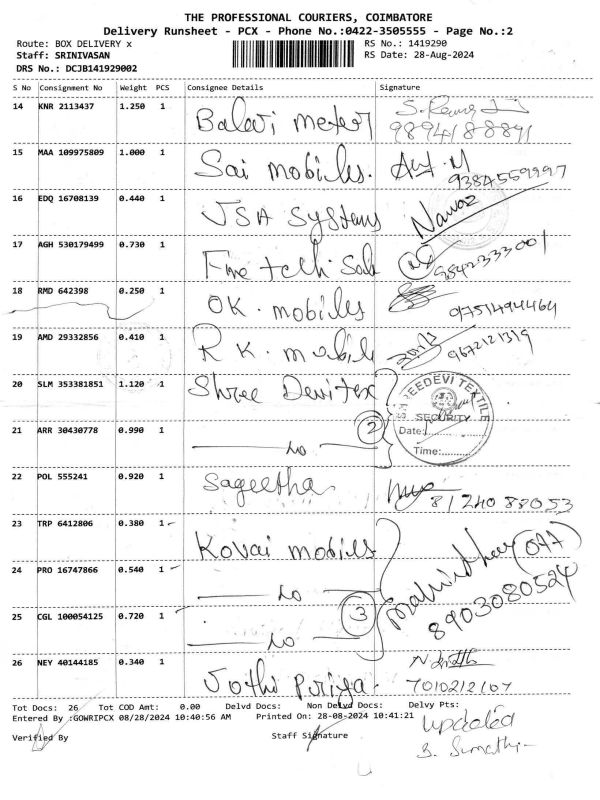 THE PROFESSIONAL COURIERS, COIMBATORE
Delivery Runsheet - PCX - Phone No.:0422-3505555 - Page No.:2
Route: BOX DELIVERY x RS No.: 1419290
Staff: SRINIVASAN RS Date: 28-Aug-2024
DRS No.: DCJB141929002
S No Consignment No Weight PCS Consignee Details Signature
14 KNR 2113437 1.250 1 Balavi meter
9894188891
15 MAA 109975809 1.000 1 Sai mobiles.
9384559997
16 EDQ 16708139 0.440 1 JSA Systems Nawaz
17 AGH 530179499 0.730 1 9842333001
18 RMD 642398 0.250 1 OK. mobiles 9751494464
19 AMD 29332856 0.410 1 R K. mobile 9672121319
20 SLM 353381851 1.120 1 Shree Devi tex
SREEDEVI TEXTILE
SECURITY
Date:
Time:
21 ARR 30430778 0.990 1 2
22 POL 555241 0.920 1 Sageetha 8124088053
23 TRP 6412806 0.380 1 Kovai mobiles
24 PRO 16747866 0.540 1 8903080524
25 CGL 100054125 0.720 1 3
26 NEY 40144185 0.340 1 Jothi Puriya. 7010212107
Tot Docs: 26 Tot COD Amt: 0.00 Delvd Docs: Non Delvd Docs: Delvy Pts:
Entered By :GOWRIPCX 08/28/2024 10:40:56 AM Printed On: 28-08-2024 10:41:21
updated
Verified By Staff Signature
B. Sumathi